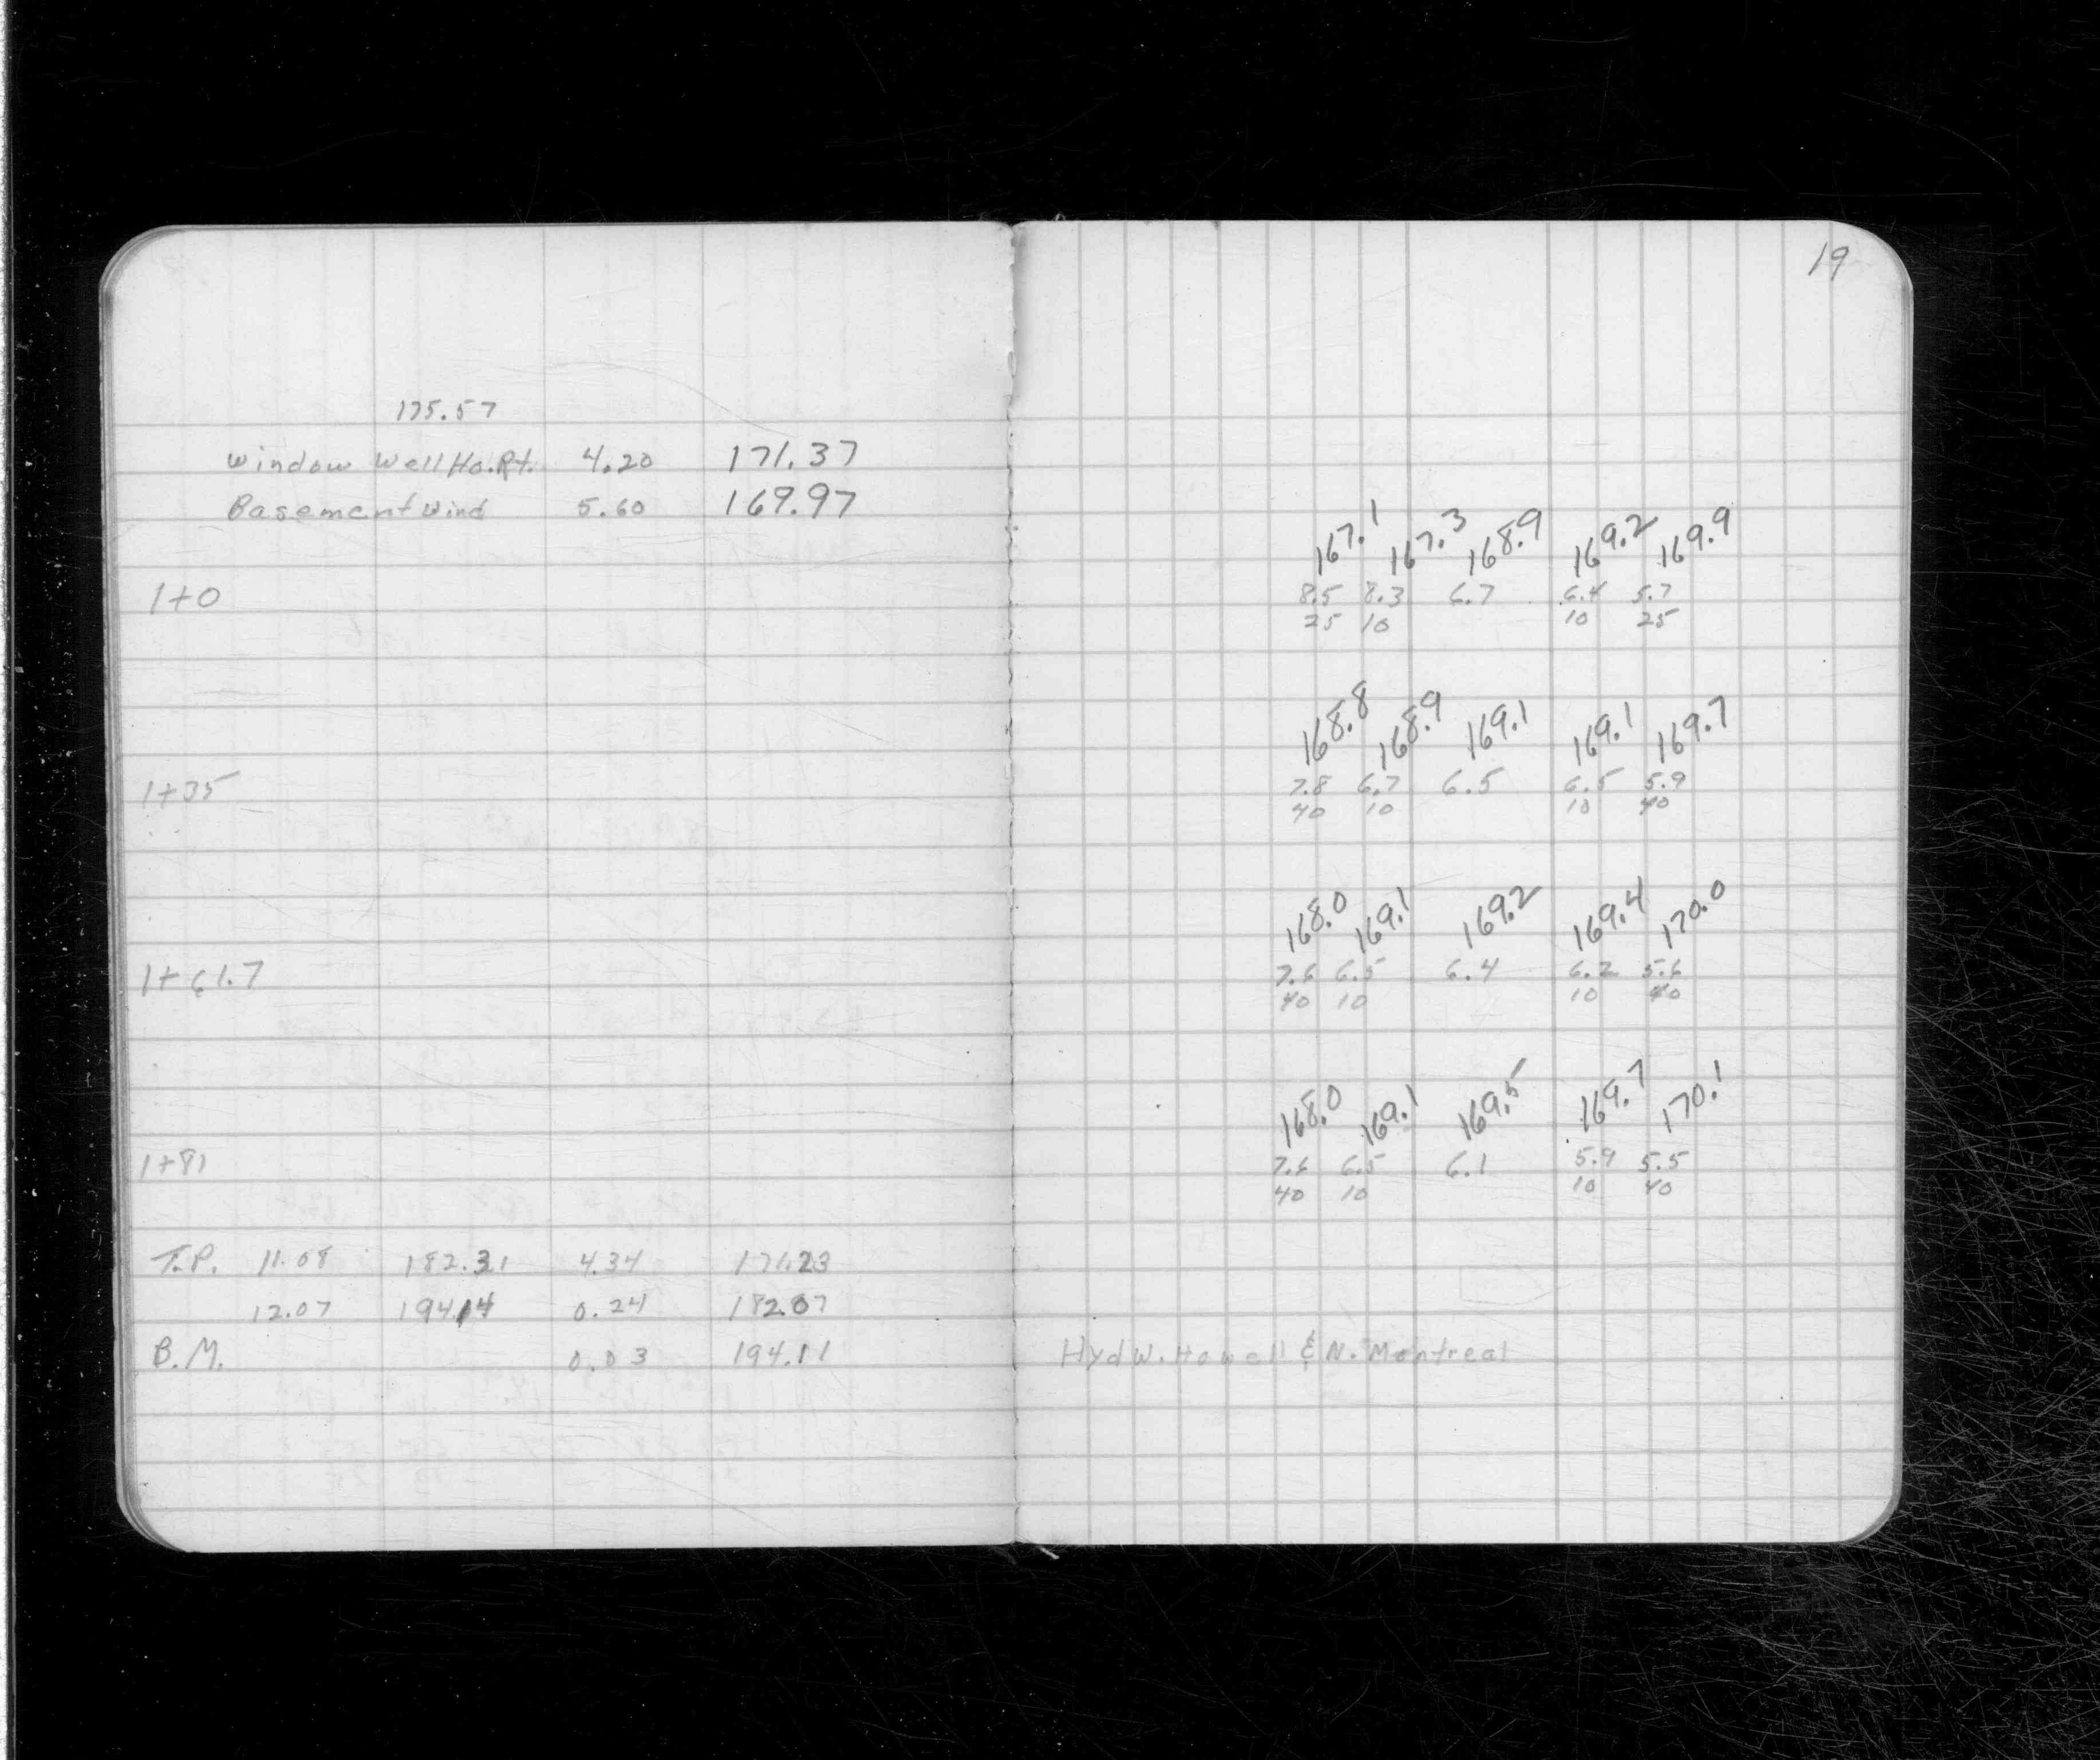 19
175.57
Window Well Ho.Rt. 4.20 171.37
Basement Wind 5.60 169.97
167.1 167.3 168.9 169.2 169.9
1+0 8.5 8.3 6.7 6.4 5.7
25 10 10 25
168.8 168.9 169.1 169.1 169.7
1+35 7.8 6.7 6.5 6.5 5.9
40 10 10 40
168.0 169.1 169.2 169.4 170.0
1+61.7 7.6 6.5 6.4 6.2 5.6
40 10 10 40
168.0 169.1 169.5 169.7 170.1
1+81 7.6 6.5 6.1 5.9 5.5
40 10 10 40
T.P. 11.08 182.31 4.34 171.23
12.07 194.14 0.24 182.07
B.M. 0.03 194.11 Hyd W. Howell & N. Montreal